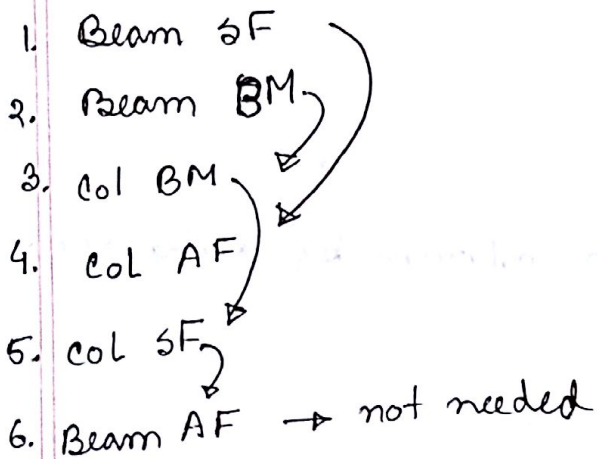 1. Beam SF
2. Beam BM
3. Col BM
4. Col AF
5. Col SF
6. Beam AF → not needed